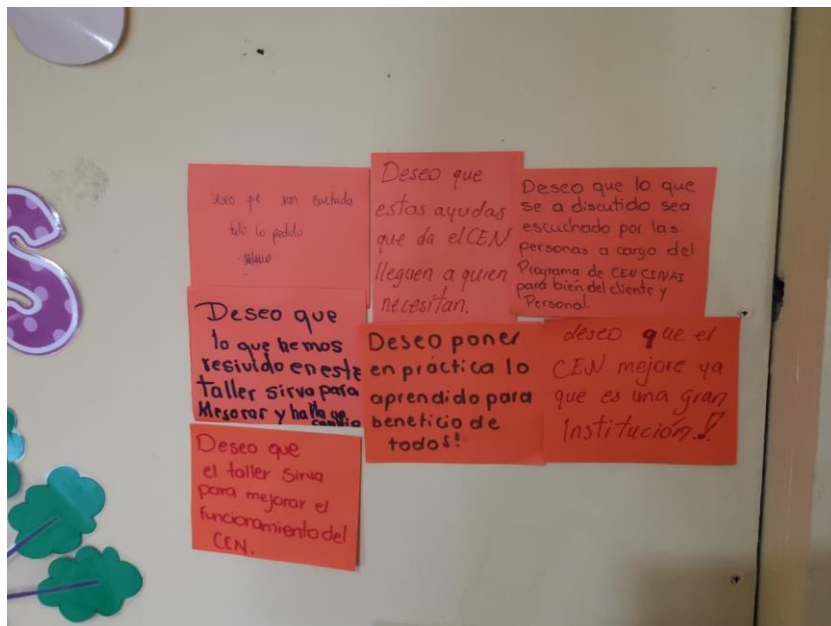 Deseo que sean escuchada
todo lo pedido
Deseo que
estas ayudas
que da el CEN
lleguen a quien
necesitan.
Deseo que lo que
se a discutido sea
escuchado por las
personas a cargo del
Programa de CEN CINAI
para bien del cliente y
Personal.
Deseo que
lo que hemos
resivido en este
taller sirva para
Mejorar y halla un
cambio
Deseo poner
en práctica lo
aprendido para
beneficio de
todos!
deseo que el
CEN mejore ya
que es una gran
Institución.!
Deseo que
el taller sirva
para mejorar el
funcionamiento del
CEN.